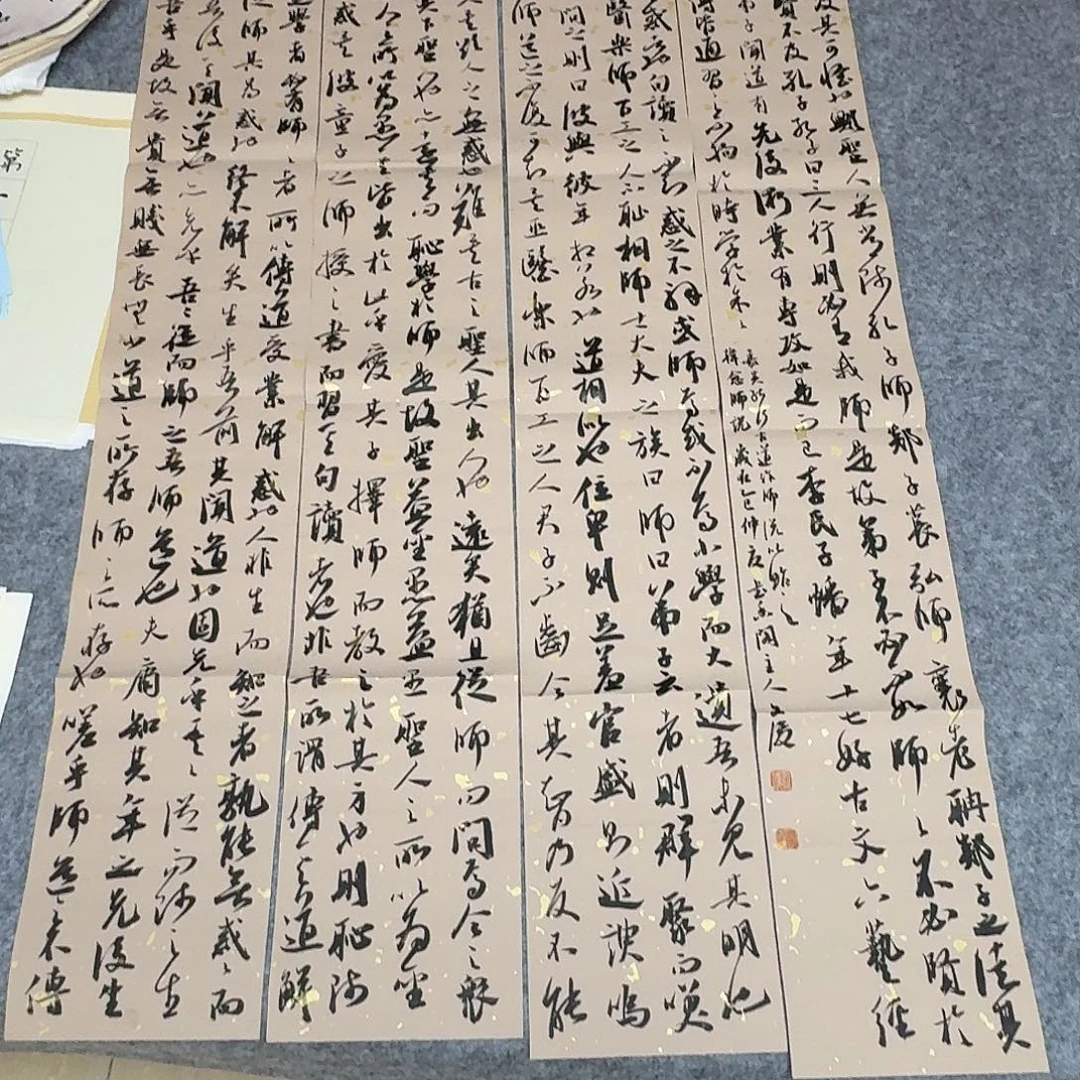 學者必有師〻者所以傳道受業解惑也人非生而知之者孰能無惑〻而
從師其為惑也終不解矣生乎吾前其聞道也固先乎吾〻從而師之生
吾後其聞道也亦先乎吾〻從而師之吾師道也夫庸知其年之先後生
吾乎是故無貴無賤無長無少道之所存師之所存也嗟乎師道之不傳
矣欲人之無惑也難矣古之聖人其出人也遠矣猶且從師而問焉今之眾
其下聖人也亦遠矣而恥學於師是故聖益聖愚益愚聖人之所以為聖
人之所以為愚其皆出於此乎愛其子擇師而教之於其身也則恥師
惑矣彼童子之師授之書而習其句讀者也非吾所謂傳其道解
惑者句讀之不知惑之不解或師焉或不焉小學而大遺吾未見其明也
醫樂師百工之人不恥相師士大夫之族曰師曰弟子云者則群聚而笑
問之則曰彼與彼年相若也道相似也位卑則足羞官盛則近諛嗚
師道之不復可知矣巫醫樂師百工之人君子不齒今其智乃反不能
及其可怪也歟聖人無常師孔子師郯子萇弘師襄老聃郯子之徒其
賢不及孔子孔子曰三人行則必有我師是故弟子不必不如師〻不必賢於
弟子聞道有先後術業有專攻如是而已李氏子蟠年十七好古文六藝經
傳皆通習之不拘於時學於余〻
嘉其能行古道作師說以貽之
韓愈師說 歲在乙巳仲夏
第一